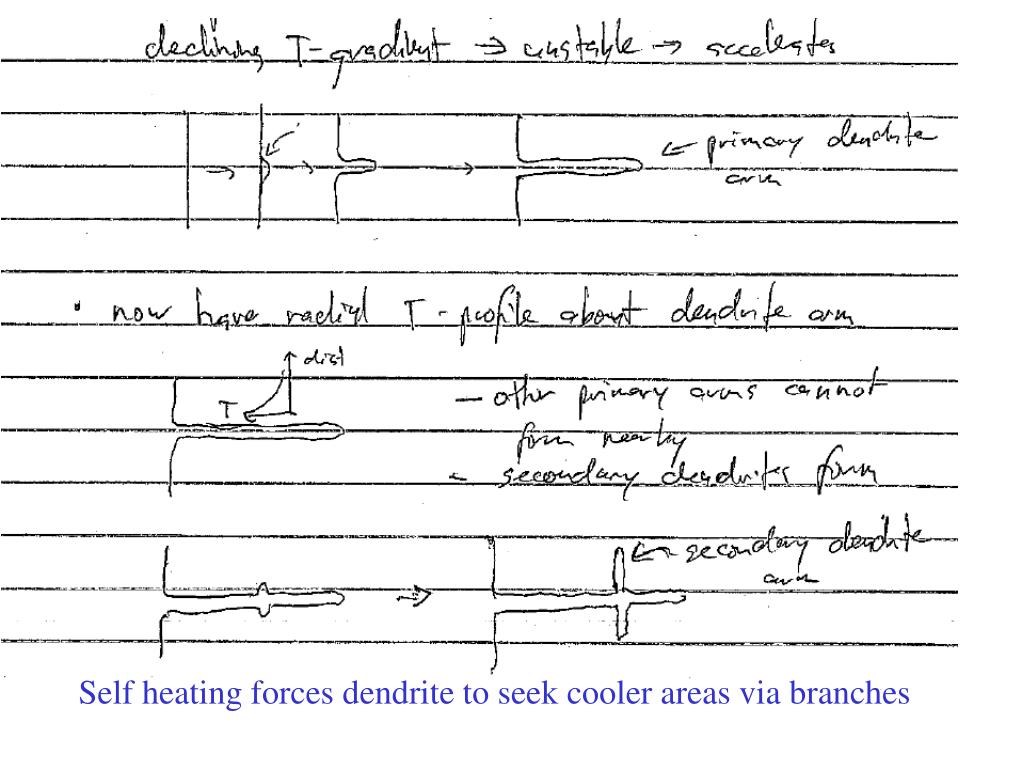 declining T-gradient → unstable → accelerates
← primary dendrite
arm
• now have radial T-profile about dendrite arm
dist
T
- other primary arms cannot
form nearby
- secondary dendrites form
← secondary dendrite
arm
Self heating forces dendrite to seek cooler areas via branches